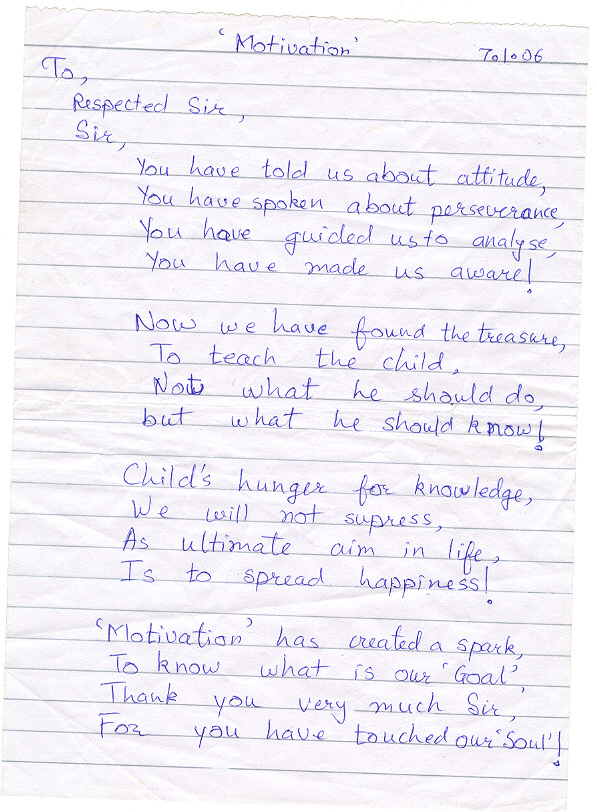 'Motivation'
7.10.06
To,
Respected Sir,
Sir,
You have told us about attitude,
You have spoken about perseverance,
You have guided us to analyse,
You have made us aware!
Now we have found the treasure,
To teach the child,
Not what he should do,
but what he should know!
Child's hunger for knowledge,
We will not supress,
As ultimate aim in life,
Is to spread happiness!
'Motivation' has created a spark,
To know what is our 'Goal',
Thank you very much Sir,
For you have touched our 'Soul'!